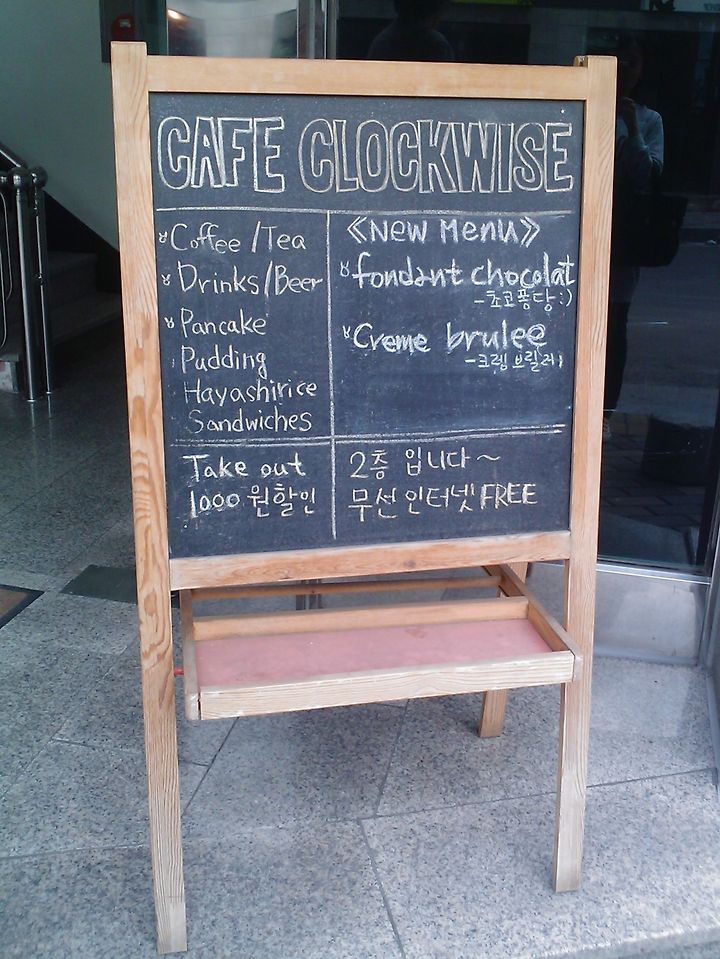 CAFE CLOCKWISE
Coffee / Tea
Drinks/Beer
Pancake
Pudding
Hayashirice
Sandwiches
《New Menu》
fondant chocolat
-초코퐁당:)
Creme brulee
-크렘브릴레
Take out
1000원할인
2층 입니다~
무선인터넷 FREE